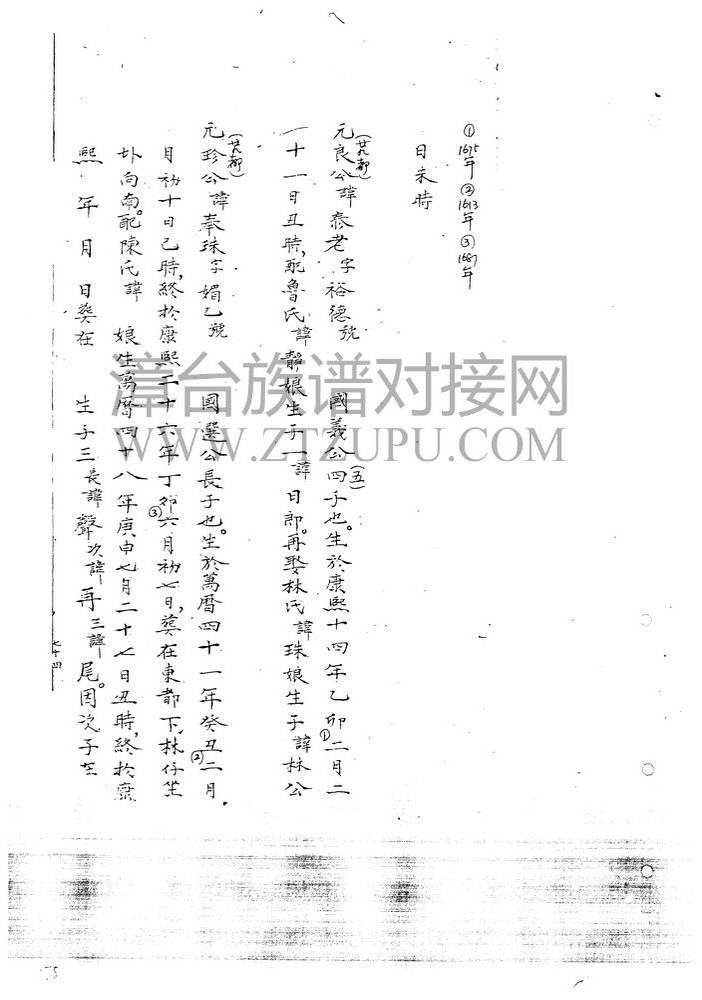 ①1675年②1613年③1687年
日未時
(廿九都)
元良公諱泰老字裕德號 國義公四(五)子也。生於康熙十四年乙卯①二月二
十一日丑時,配魯氏諱靜娘生子一諱日郎。再娶林氏諱珠娘生子諱林公
(廿九都)
元珍公諱奉珠字媚乙號 國選公長子也。生於萬曆四十一年癸丑②二月
月初十日巳時,終於康熙二十六年丁卯③六月初七日,葬在東都下,林仔坐
圤向南。配陳氏諱 娘生萬曆四十八年庚申七月二十七日丑時,終於康
熙 年 月 日葬在 生子三長諱聲次諱再三諱尾。因次子在
七十四
漳台族谱对接网
WWW.ZTZUPU.COM